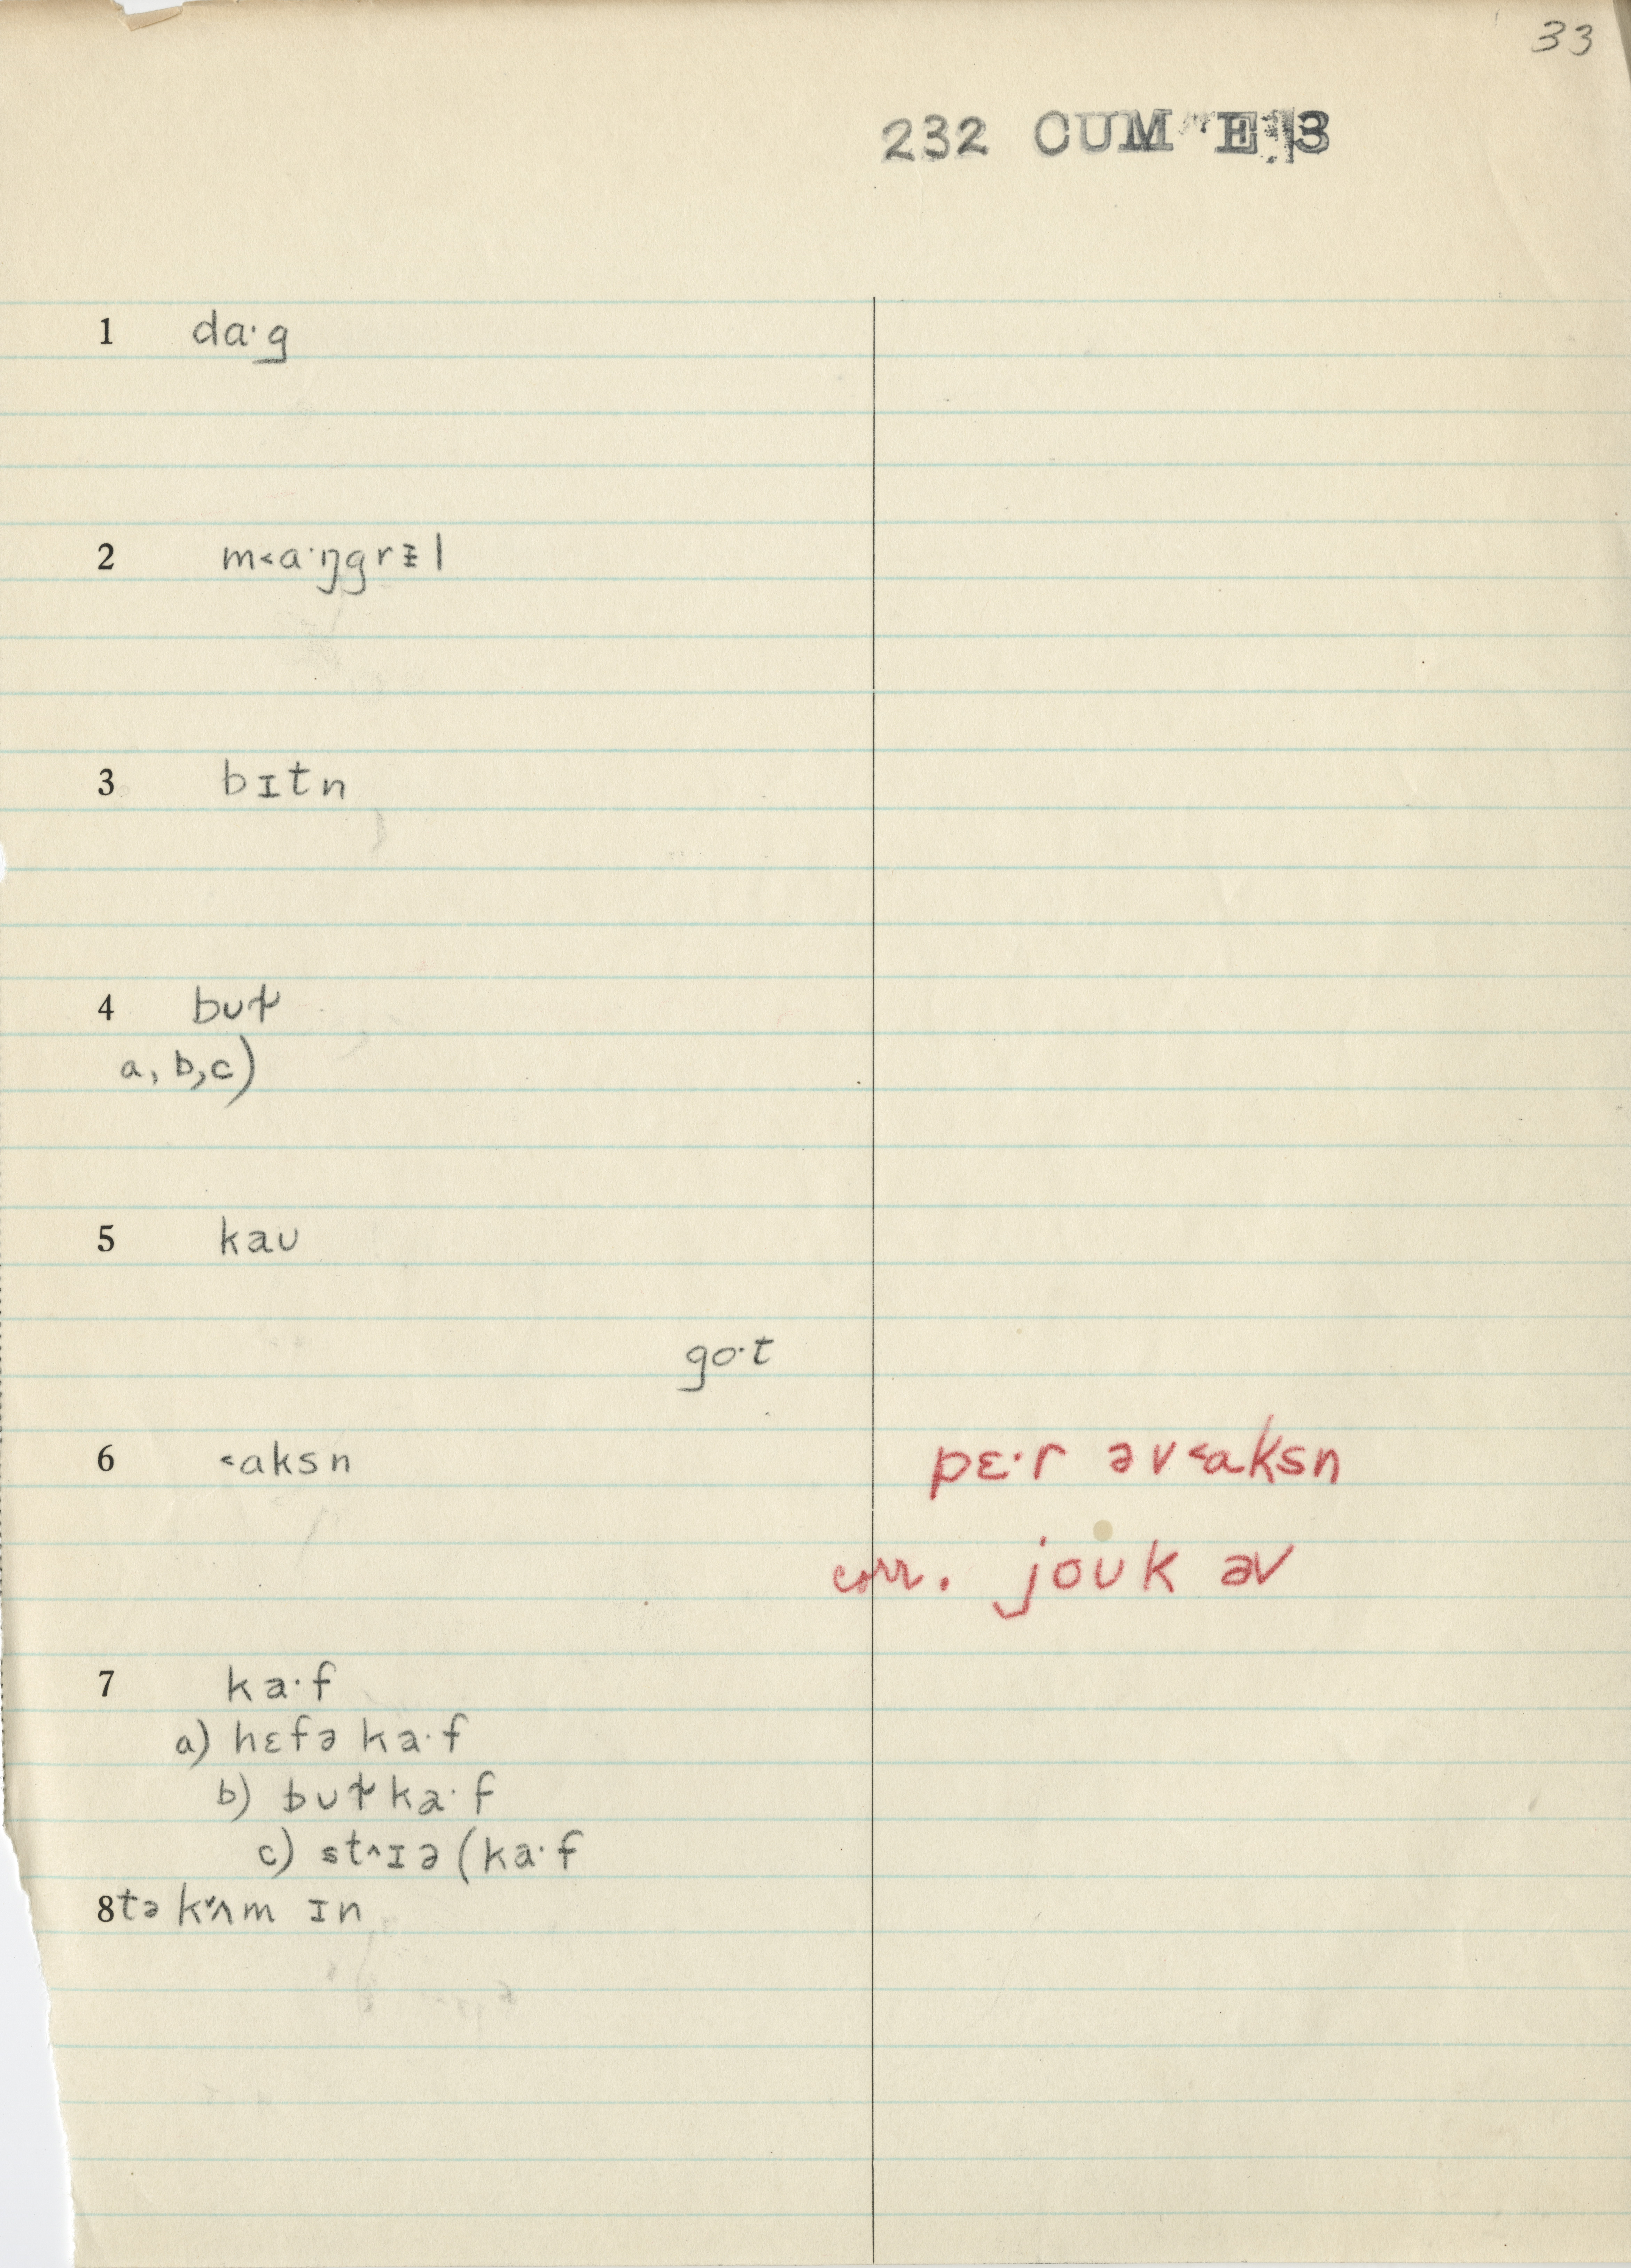 33
232 CUM E 3
1 da·g
2 m˂a·ŋgrɪ̵l
3 bɪtn
4 bʊɫ
a, b, c)
5 kaʊ
go·t
6 ˂aksn pɛ·r əv˂aksn
corr. joʊk əv
7 ka·f
a) hɛfə ka·f
b) bʊɫ ka·f
c) st˄ɪə (ka·f
8 tə k˅ʌm ɪn